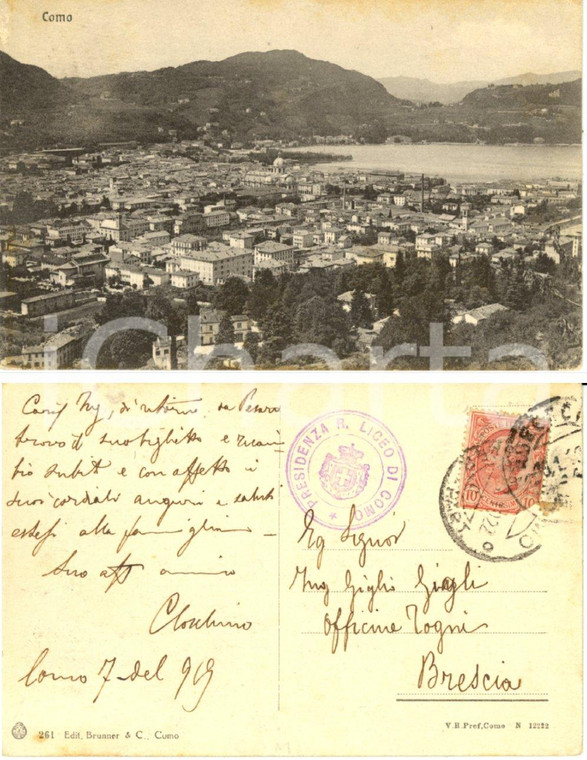 Como
iCharta
di ritorno da Pesaro
trovo il suo biglietto e ricam
bio subito e con affetto i
suoi cordiali auguri e saluti
estesi alla famiglia
Suo aff amico
Como 7 del 919
PRESIDENZA R. LICEO DI COMO
10
Eg Signor
Ing Giglio Giogli
Officine Togni
Brescia
261 Edit. Brunner & C., Como
V.R.Pref.Como N 12222